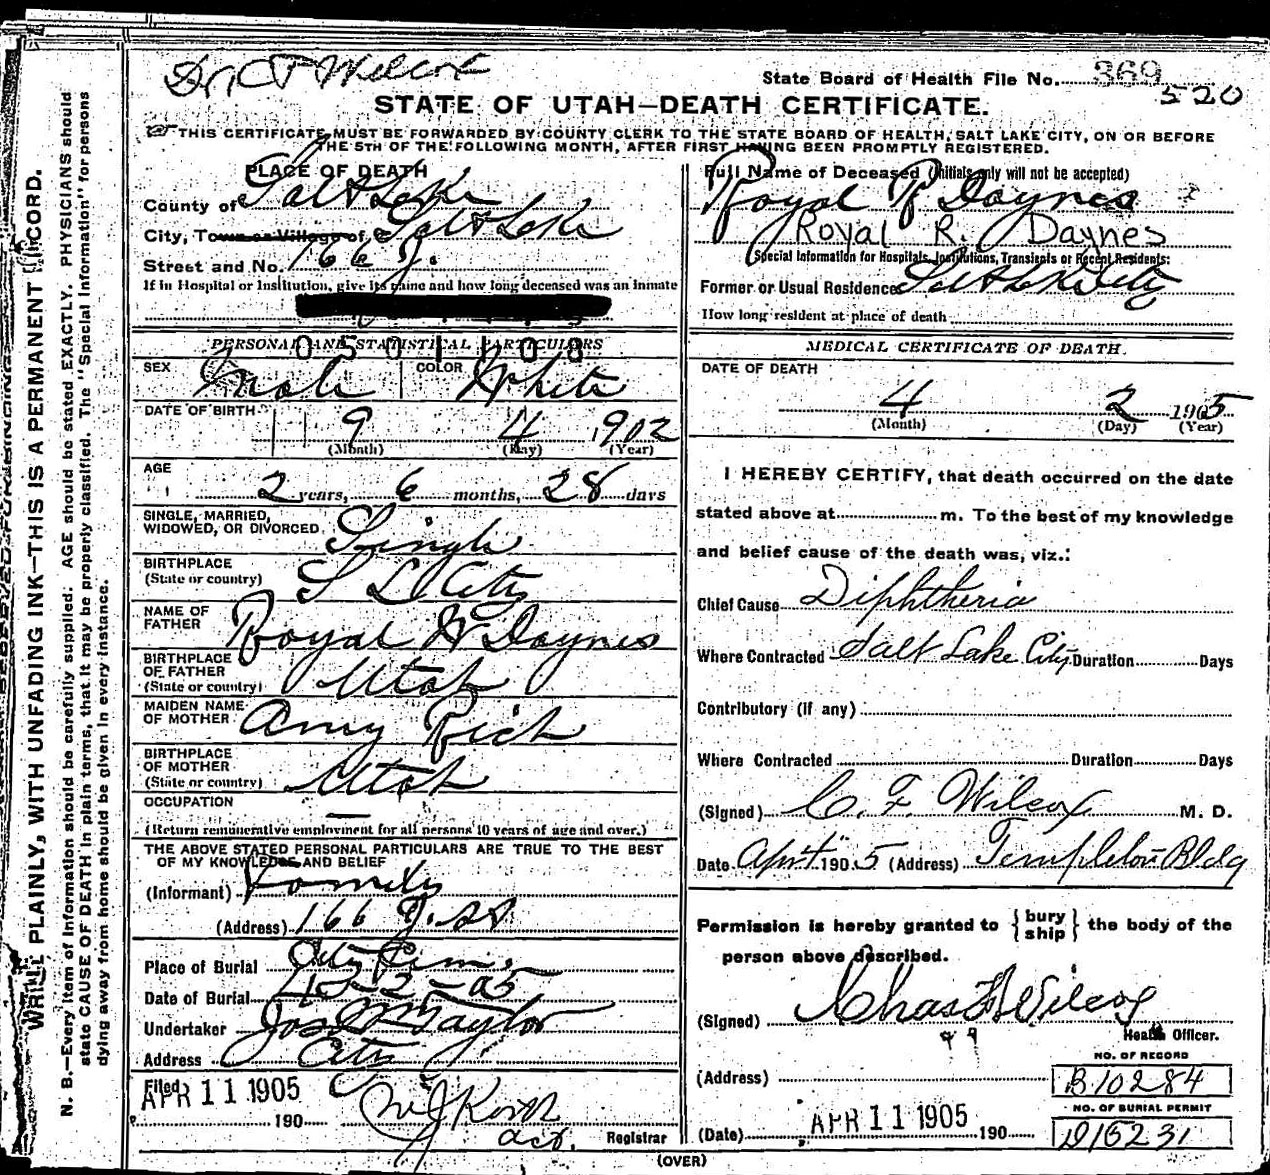 Dr C F Wilcox
State Board of Health File No. 369
520
STATE OF UTAH—DEATH CERTIFICATE.
THIS CERTIFICATE MUST BE FORWARDED BY COUNTY CLERK TO THE STATE BOARD OF HEALTH, SALT LAKE CITY, ON OR BEFORE
THE 5TH OF THE FOLLOWING MONTH, AFTER FIRST HAVING BEEN PROMPTLY REGISTERED.
WRITE PLAINLY, WITH UNFADING INK—THIS IS A PERMANENT RECORD.
N. B.—Every item of Information should be carefully supplied. AGE should be stated EXACTLY. PHYSICIANS should
state CAUSE OF DEATH in plain terms, that it may be properly classified. The "Special Information" for persons
dying away from home should be given in every instance.
PLACE OF DEATH
County of Salt Lake
City, Town or Village of Salt Lake
Street and No. 166 J.
If in Hospital or Institution, give its name and how long deceased was an inmate
PERSONAL AND STATISTICAL PARTICULORS
0501108
SEX Male COLOR White
DATE OF BIRTH 9 4 1902
(Month) (Day) (Year)
AGE
2 years, 6 months, 28 days
SINGLE, MARRIED,
WIDOWED, OR DIVORCED Single
BIRTHPLACE
(State or country) S L City
NAME OF
FATHER Royal W Daynes
BIRTHPLACE
OF FATHER
(State or country) Utah
MAIDEN NAME
OF MOTHER Amy Rich
BIRTHPLACE
OF MOTHER
(State or country) Utah
OCCUPATION —
(Return remunerative employment for all persons 10 years of age and over.)
THE ABOVE STATED PERSONAL PARTICULARS ARE TRUE TO THE BEST
OF MY KNOWLEDGE AND BELIEF
(Informant) Family
(Address) 166 J. St
Place of Burial City Cem
Date of Burial 4-2-05
Undertaker Jos Wm Taylor
Address City
Filed
APR 11 1905
190
act. Registrar
Full Name of Deceased (Initials only will not be accepted)
Royal R Daynes
Royal R. Daynes
Special Information for Hospitals, Institutions, Transients or Recent Residents:
Former or Usual Residence Salt Lake City
How long resident at place of death
MEDICAL CERTIFICATE OF DEATH.
DATE OF DEATH
4 2 1905
(Month) (Day) (Year)
I HEREBY CERTIFY, that death occurred on the date
stated above at m. To the best of my knowledge
and belief cause of the death was, viz.:
Chief Cause Diphtheria
Where Contracted Salt Lake City Duration Days
Contributory (if any)
Where Contracted Duration Days
(Signed) C. F. Wilcox M. D.
Date Apr 4 1905 (Address) Templeton Bldg
Permission is hereby granted to {bury ship} the body of the
person above described.
(Signed) Chas F Wilcox
Health Officer.
NO. OF RECORD
(Address) B10284
NO. OF BURIAL PERMIT
(Date) APR 11 1905 190 D15231
(OVER)